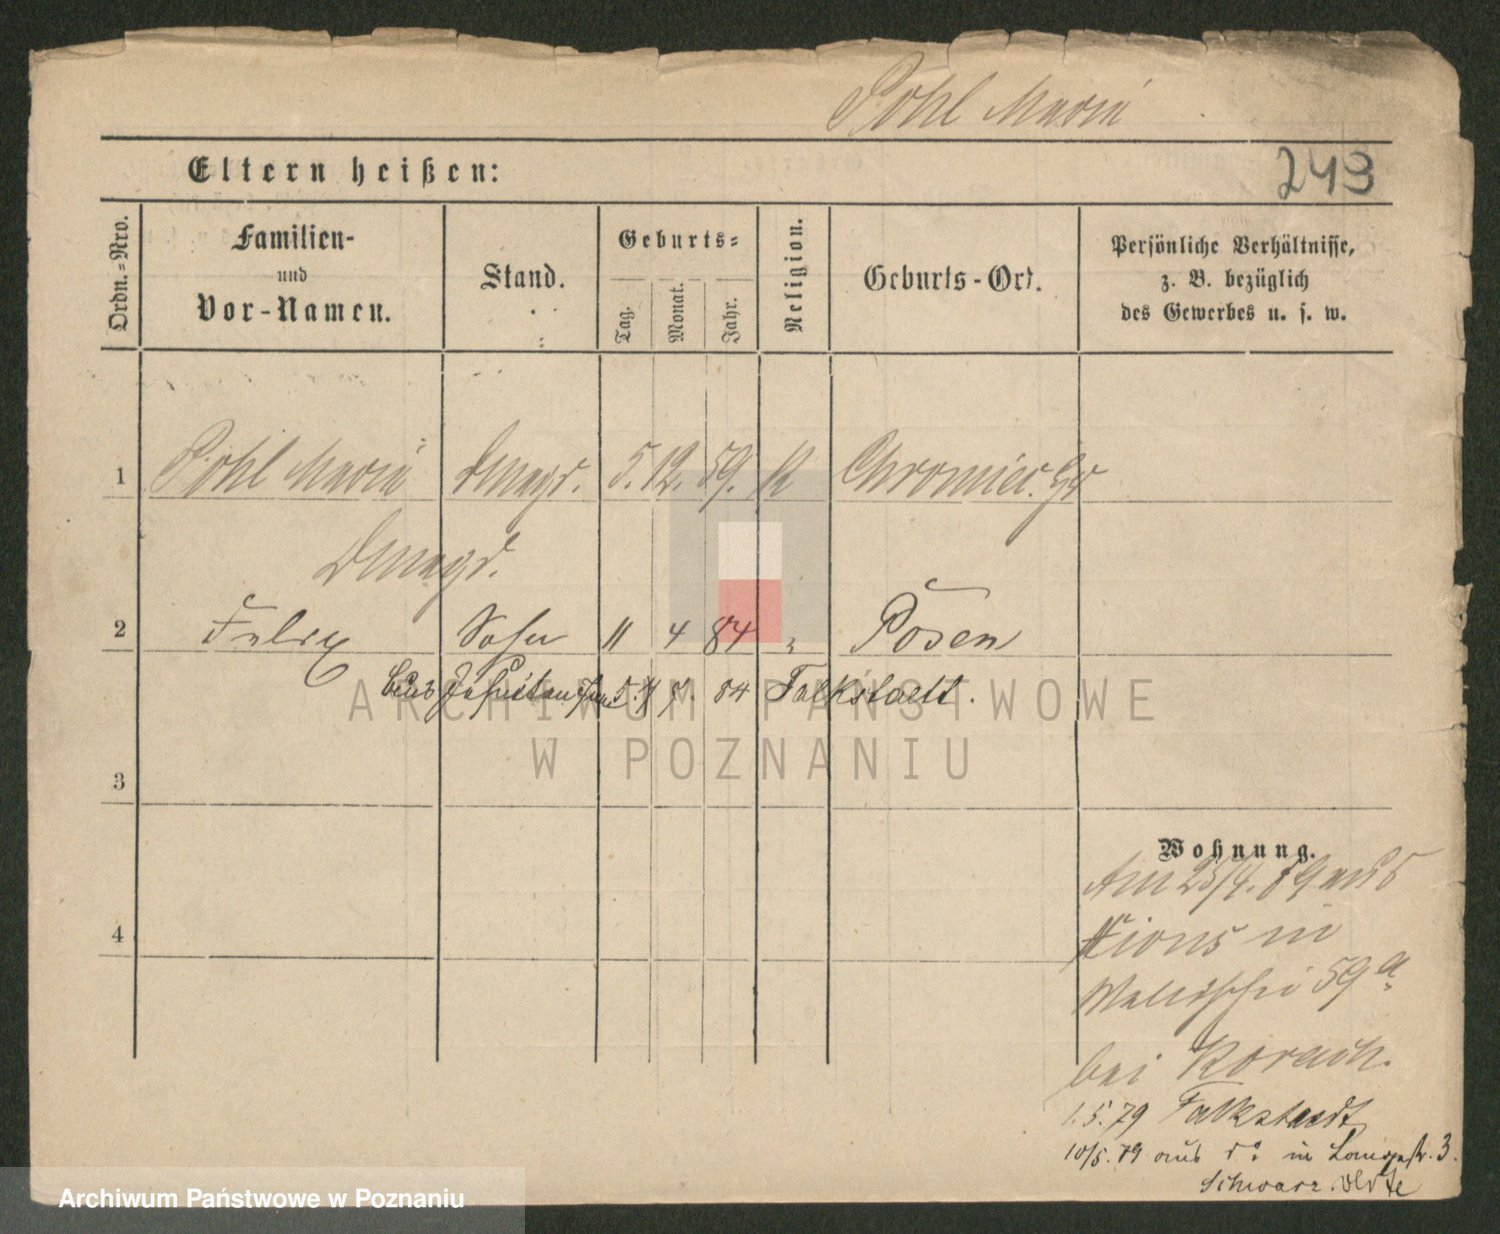 Pohl Maria
Eltern heißen:
243
Ordn.-Nro.
Familien-
und
Vor-Namen.
Stand.
Geburts-
Tag.
Monat.
Jahr.
Religion.
Geburts-Ort.
Persönliche Verhältnisse,
z. B. bezüglich
des Gewerbes u. s. w.
1 Pohl Maria Dmagd. 5. 12. 59. K Chromiec.
Dmagd.
2 Felix Sohn 11 4 84 " Posen
84 Falkstaedt.
ARCHIWUM PAŃSTWOWE
W POZNANIU
3
Wohnung.
Am 25/4. 79 aus
Xions in
4
Wallischei 59a
bei
1.5.79 Falkstaedt
10/5.79 aus do in Langestr. 3.
Schwarz.
Archiwum Państwowe w Poznaniu